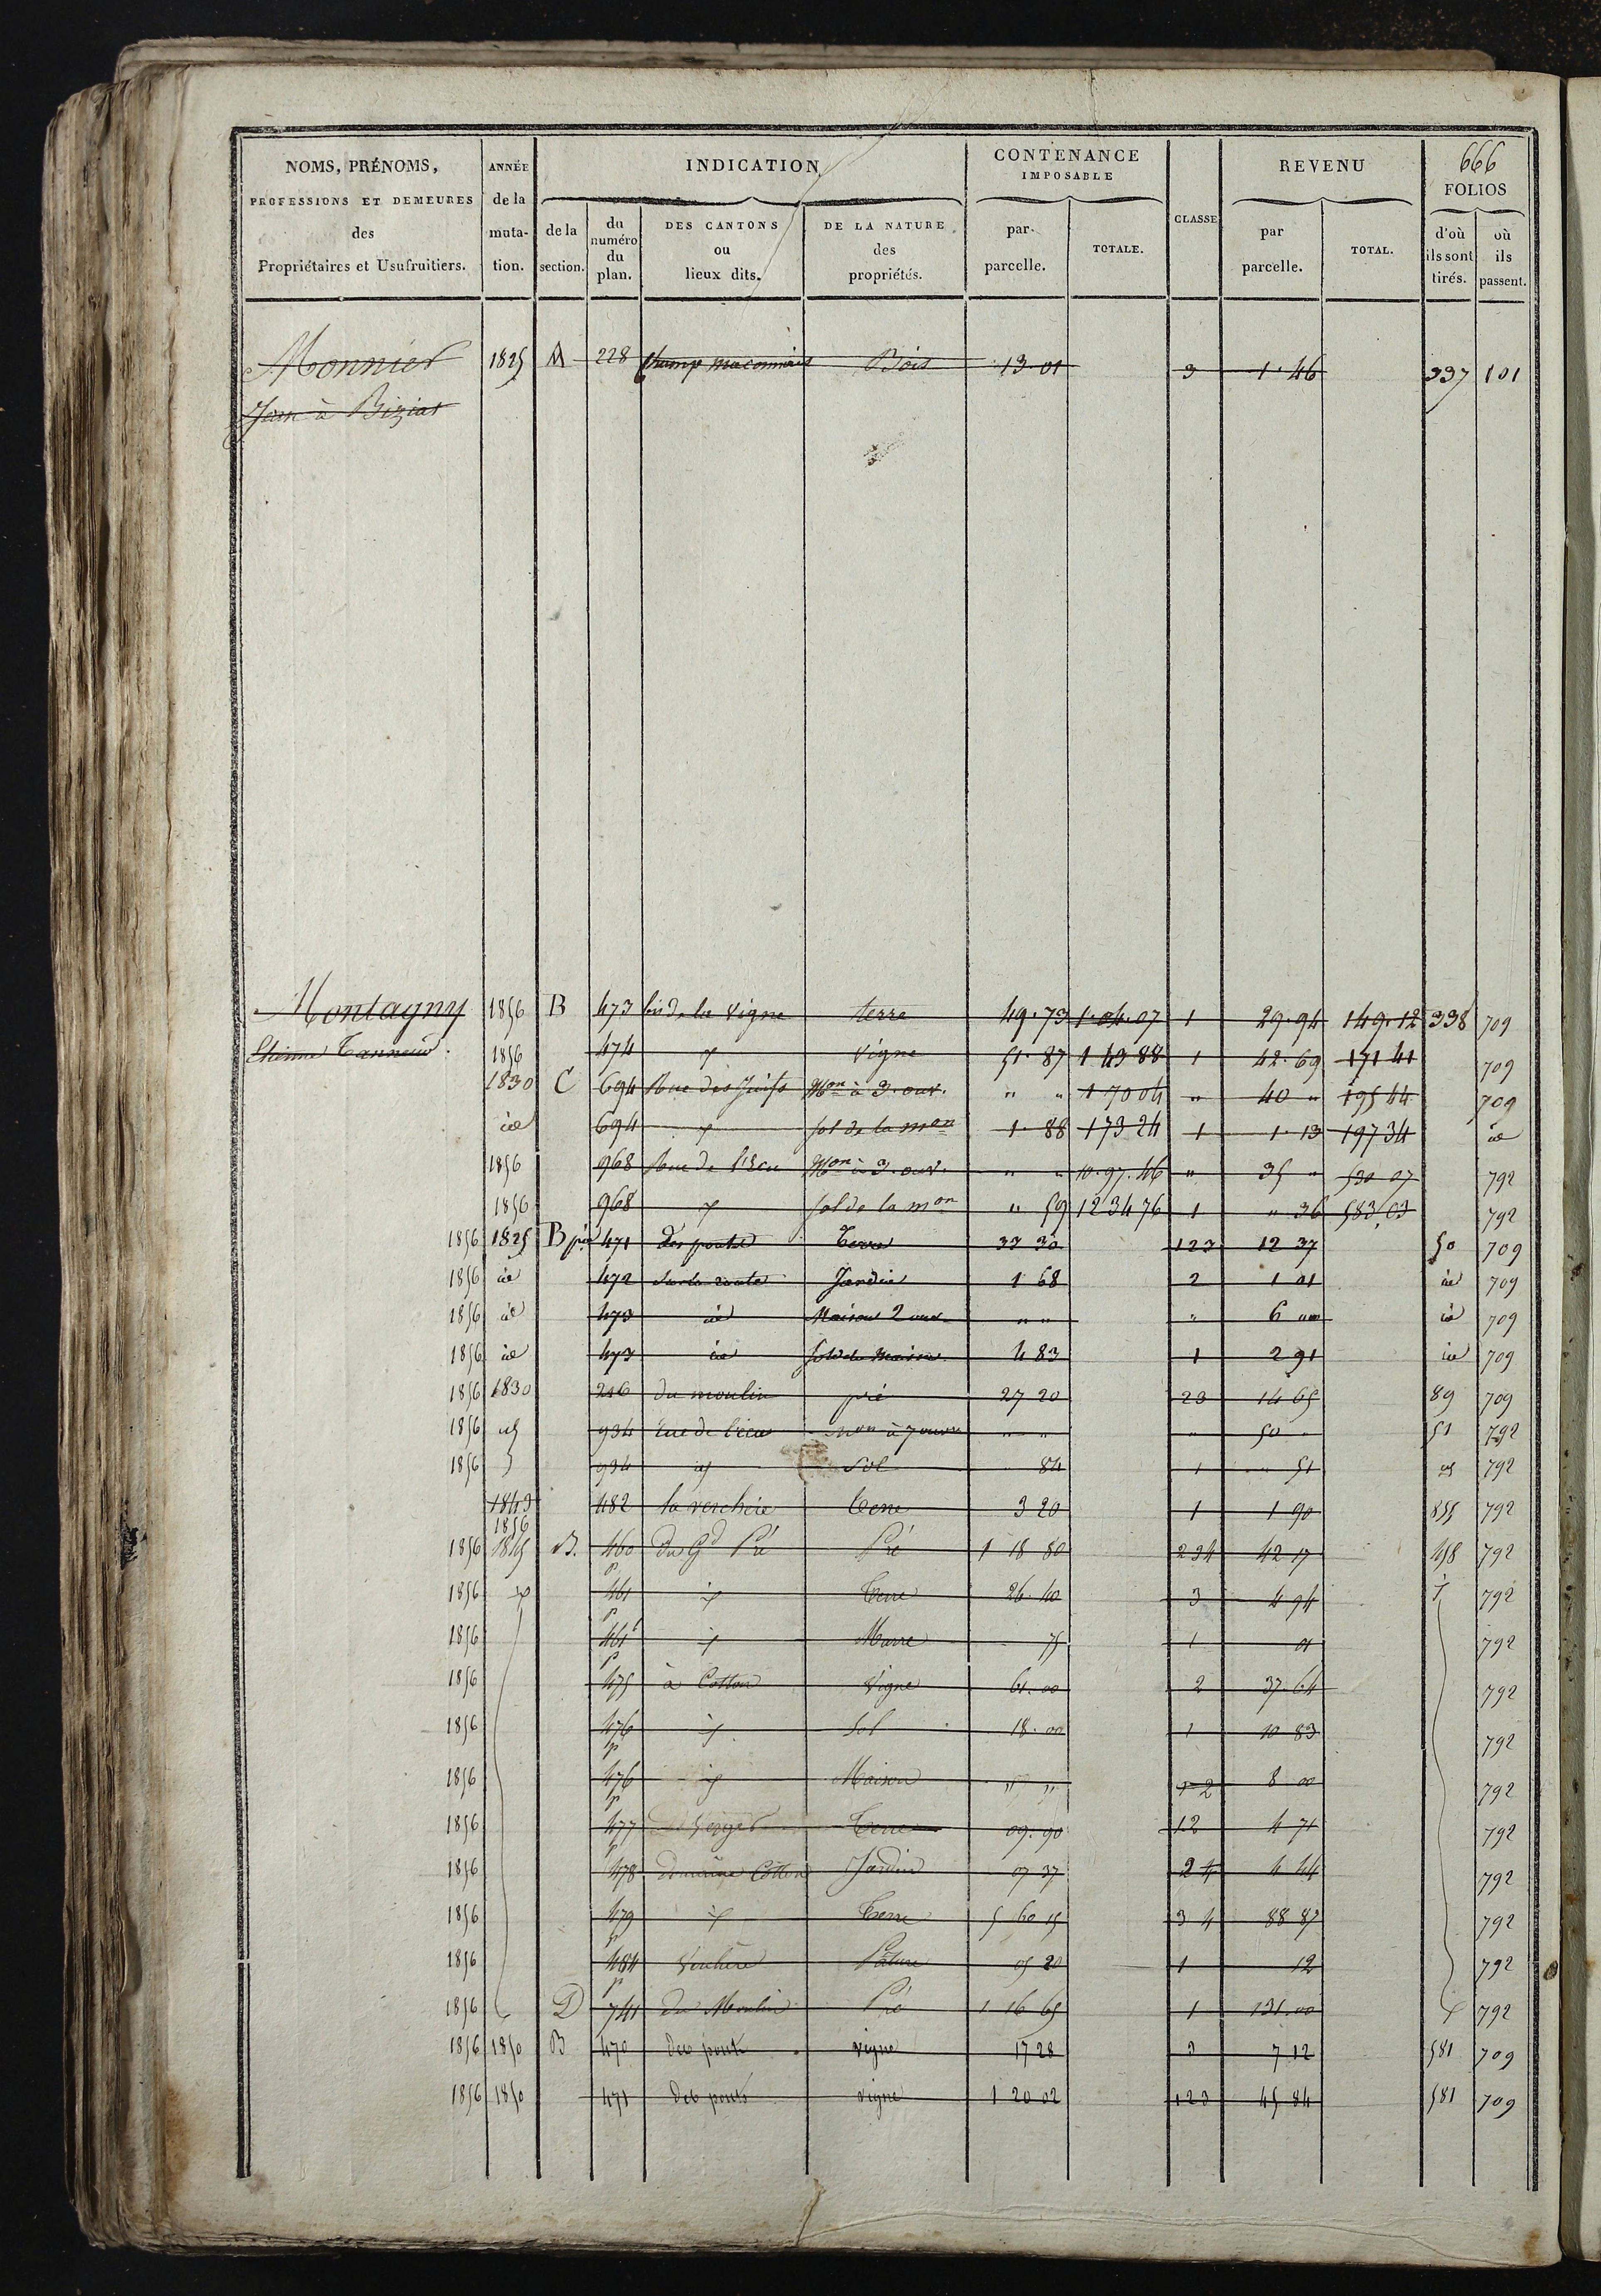 666
NOMS, PRÉNOMS, PROFESSIONS ET DEMEURES des Propriétaires et Usufruitiers.
ANNÉE de la mutation.
INDICATION
de la section.
du numéro du plan.
DES CANTONS ou lieux dits.
DE LA NATURE des propriétés.
CONTENANCE IMPOSABLE
par parcelle.
TOTALE.
CLASSE
REVENU
par parcelle.
TOTAL.
FOLIOS
d'où ils sont tirés.
où ils passent.
Monnier 1825 A 228 Champ Bois 13 01 3 1 46 337 101
Jean à Biziat
Montagny 1856 B 473 de la Vigne terre 49.73 1.04.07 1 29.94 149.12 338 709
Etienne Tanneur. 1856 474 vigne 51.87 1 49 88 1 42.69 171 41 709
1830 C 694 Rue des Juifs Mon à 3. ouv. " " 1 70 04 " 40 " 195 44 709
id 694 sol de la mon 1.88 173 24 1 1.13 197 34 id
1856 968 Rue de l'Ecu Mon à 3. ouv. " " 10.97.46 " 35 " 530 07 792
1856 968 sol de la mon " 59 12 34 76 1 " 36 583.03 792
1856 1825 B 471 des ponts Terre 33 30 123 12 37 50 709
1856 id 472 Sur la route Jardin 1 68 2 1 01 id 709
1856 id 473 id Maison 2 ouv " " " 6 id 709
1856 id 473 id sol de maison 4 83 1 2 91 id 709
1856 1830 246 du moulin pré 27 20 23 14 65 89 709
1856 934 rue de l'écu mon à 7 ouv " " " 50 " 51 792
1856 934 Sol 84 1 51 792
1843 1856 482 la verchère terre 3 20 1 1 90 792
1856 1845 B. 460 du Gd Pré Pré 1 18 80 234 42 17 458 792
1856 461 Terre 26 40 3 4 94 792
1856 461 Marre 75 1 01 792
1856 475 à Cotton Vigne 61.00 2 37.64 792
1856 476 Sol 18.00 1 10 83 792
1856 476 Maison " " 1 2 8 00 792
1856 477 Verger Terre 09.90 12 4 71 792
1856 478 domaine Cotton Jardin 07 37 2 4 44 792
1856 479 Terre 5 60 15 3 4 88 87 792
1856 Pâture 05 20 1 12 792
1856 D 741 du Moulin Pré 1 16 65 1 131.00 792
1856 1850 B 470 des ponts vigne 17 28 3 7 12 581 709
1856 1850 471 des ponts vigne 1 20 02 123 45 84 581 709